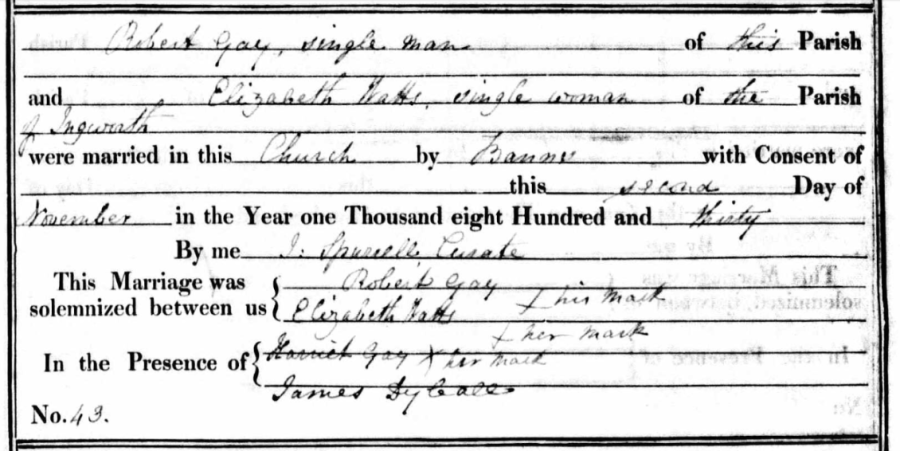 Robert Gay, single man of this Parish
and Elizabeth Watts, single woman of the Parish
of Ingworth
were married in this Church by Banns with Consent of
this second Day of
November in the Year one Thousand eight Hundred and thirty
By me J: Spurrell Curate
This Marriage was solemnized between us { Robert Gay + his mark
Elizabeth Watts + her mark
In the Presence of { Harriet Gay X her mark
James Dyball
No. 43.